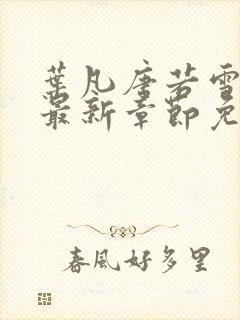 葉凡唐若雪
最新章節免
春風好多里